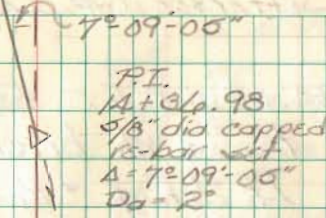 7°-09'-06"
P.I.
14+36.98
5/8" dia capped
re-bar set
Δ = 7°-09'-06"
Da = 2°